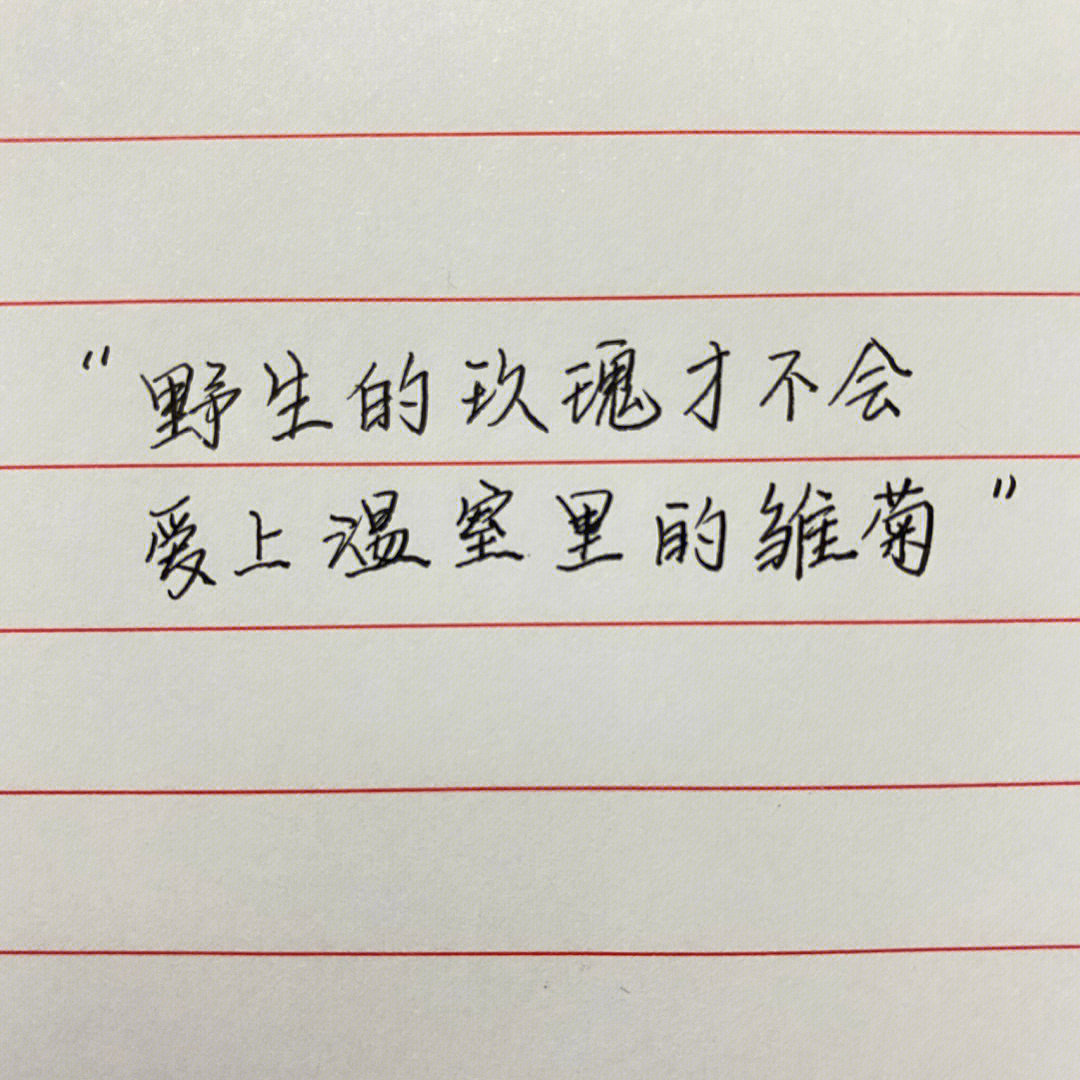 “野生的玫瑰才不会
爱上温室里的雏菊”